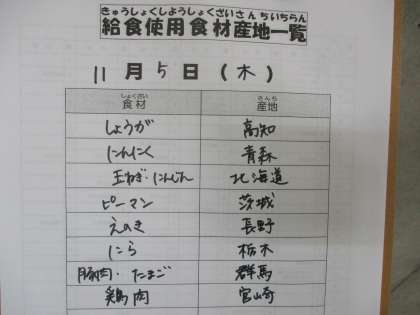 きゅうしょくしようしょくざいさんちいちらん
給食使用食材産地一覧
11月5日(木)
しょくざい さんち
食材 産地
しょうが 高知
にんにく 青森
玉ねぎ・にんじん 北海道
ピーマン 茨城
えのき 長野
にら 栃木
豚肉・たまご 群馬
鶏肉 宮崎